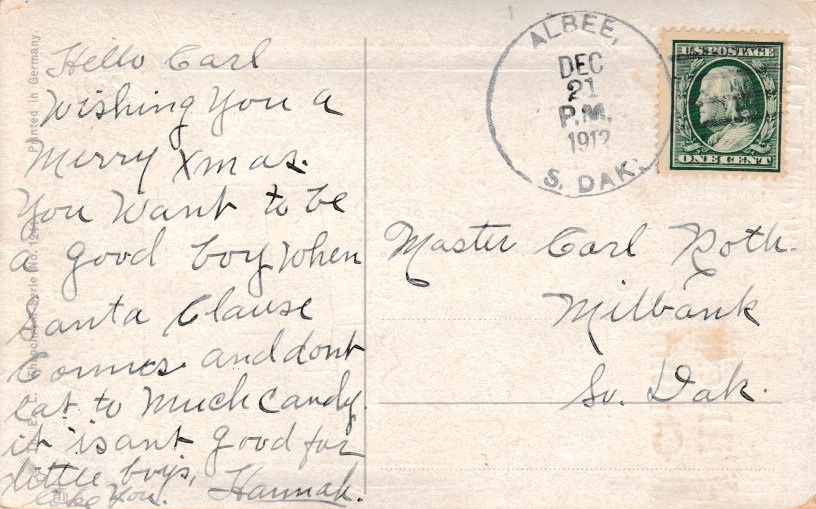 Hello Carl
Wishing You a
Merry Xmas.
You Want to be
a good boy When
Santa Clause
Comes and dont
Eat to Much Candy.
it isant good for
little boys,
like You. Hannah.
Printed in Germany
ALBEE,
DEC
21
P.M.
1912
S. DAK.
U.S. POSTAGE
ONE CENT
Master Carl Roth.
Milbank
So. Dak.